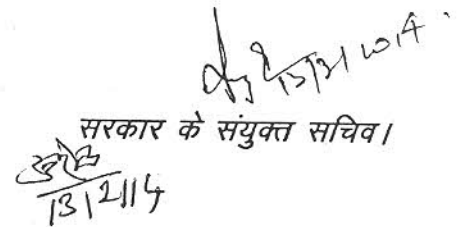 13/2/2014
सरकार के संयुक्त सचिव।
13/2/14